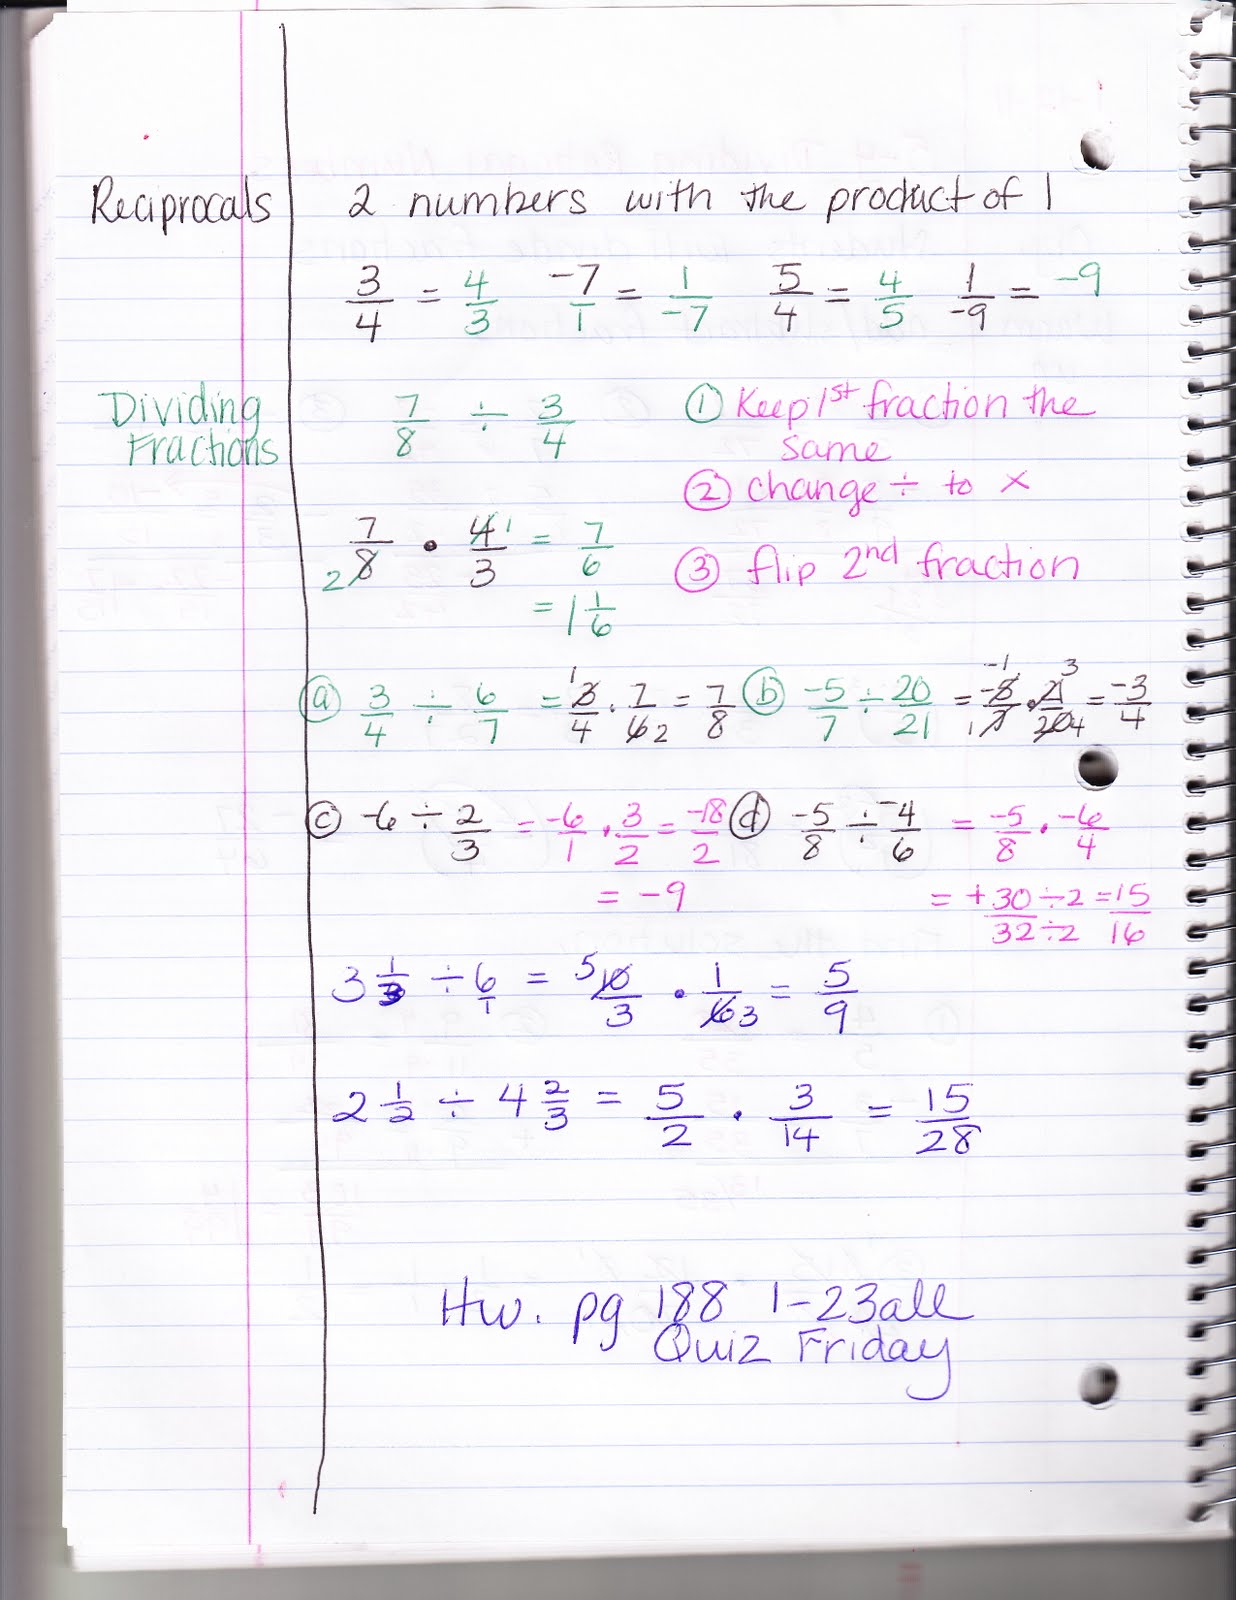 Reciprocals 2 numbers with the product of 1
3/4 = 4/3 -7/1 = 1/-7 5/4 = 4/5 1/-9 = -9
Dividing Fractions
7/8 ÷ 3/4
① Keep 1st fraction the
same
② change ÷ to ×
7/8 2 • 4/3 1 = 7/6
③ flip 2nd fraction
= 1 1/6
ⓐ 3/4 ÷ 6/7 = 1 3/4 . 7/6 2 = 7/8 ⓑ -5/7 ÷ 20/21 = -1 -5/7 1 . 21 3/20 4 = -3/4
ⓒ -6 ÷ 2/3 = -6/1 . 3/2 = -18/2 ⓓ -5/8 ÷ -4/6 = -5/8 . -6/4
= -9 = +30÷2/32÷2 = 15/16
3 1/3 ÷ 6/1 = 5 10/3 • 1/6 3 = 5/9
2 1/2 ÷ 4 2/3 = 5/2 . 3/14 = 15/28
Hw. pg 188 1-23all
Quiz Friday